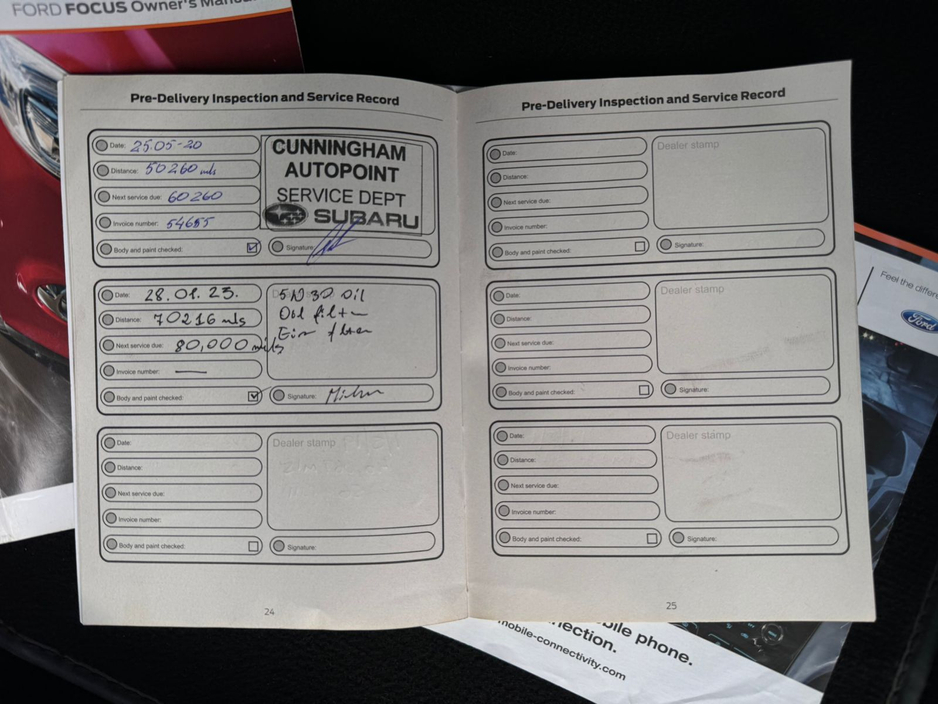 FORD FOCUS Owner's Manual
Pre-Delivery Inspection and Service Record
Date: 25.05-20
Distance: 50260 mls
Next service due: 60260
Invoice number: 54685
Body and paint checked:
CUNNINGHAM
AUTOPOINT
SERVICE DEPT
SUBARU
Signature:
Date: 28.01.23.
Distance: 70216 mls
Next service due: 80,000 mils
Invoice number: —
Body and paint checked:
5W30 Oil
Oil filter
Signature:
Date:
Distance:
Next service due:
Invoice number:
Body and paint checked:
Dealer stamp
Signature:
24
Pre-Delivery Inspection and Service Record
Date:
Distance:
Next service due:
Invoice number:
Body and paint checked:
Dealer stamp
Signature:
Date:
Distance:
Next service due:
Invoice number:
Body and paint checked:
Dealer stamp
Signature:
Date:
Distance:
Next service due:
Invoice number:
Body and paint checked:
Dealer stamp
Signature:
25
Feel the difference
Ford
mobile phone.
mobile-connectivity.com